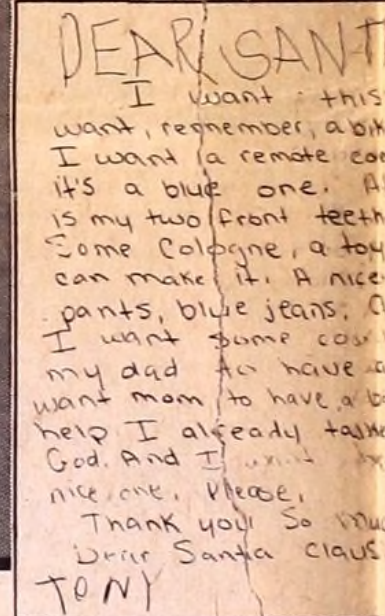 DEAR SANT
I want this
want, remember, a bik
I want a remote co
it's a blue one. A
is my two front teeth
Some Cologne, a toy
can make it. A nice
pants, blue jeans,
I want some
my dad to have a
want mom to have a b
help I already talke
God. And I want
nice one, Please,
Thank you So muc
Dear Santa Claus
TONY